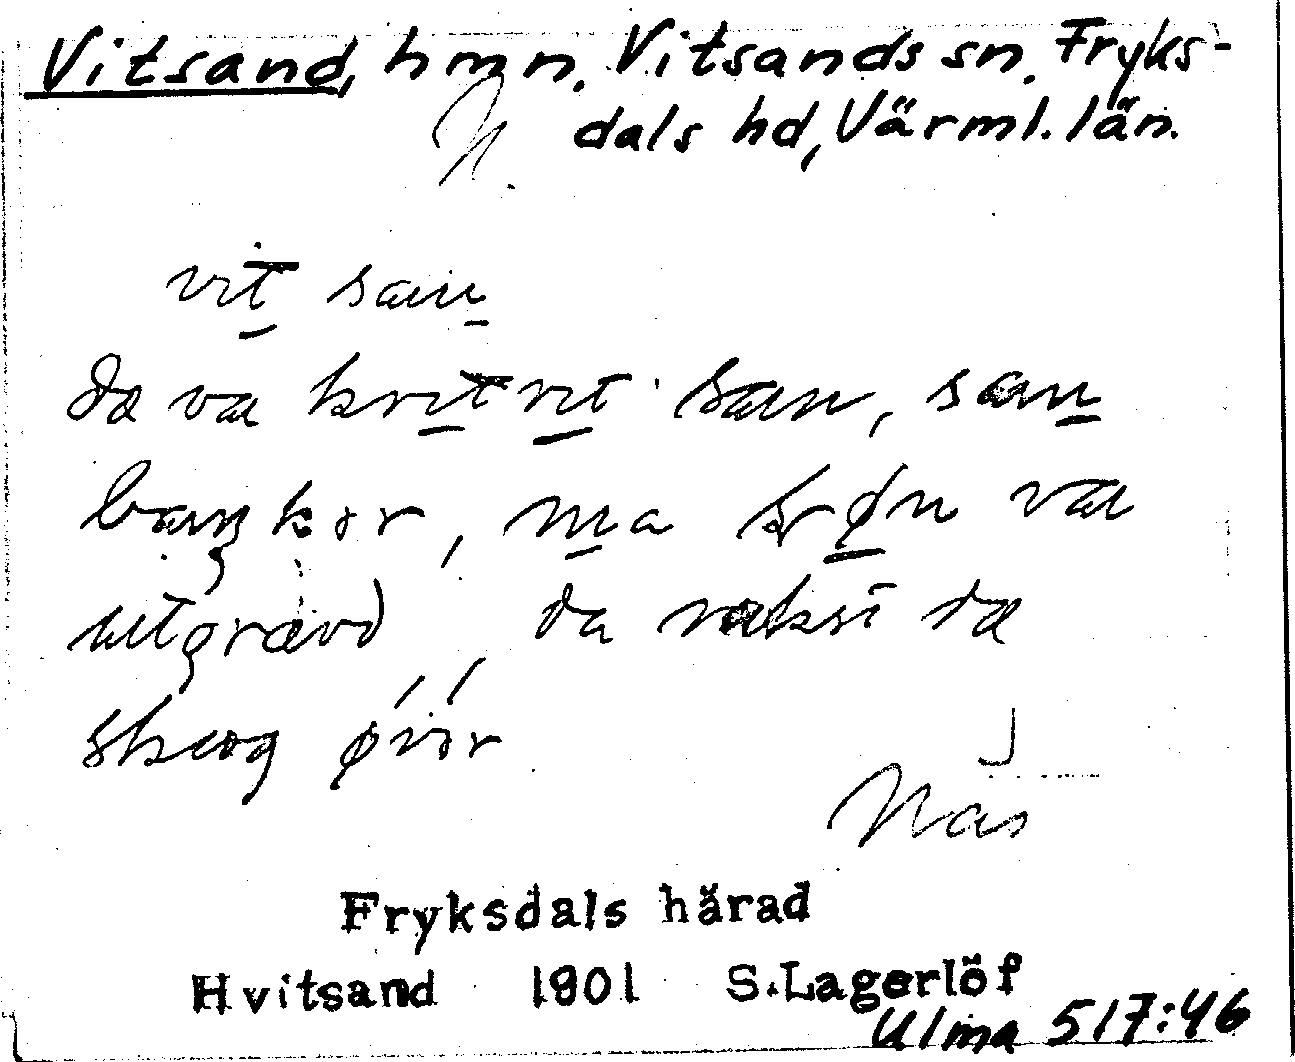 Vitsand, hmn. Vitsands sn. Fryks-
N. dals hd, Värml. län.
vit san
dæ va kvitvit san, san
bankər, va
utgrævd, da dæ
skuog øvər
Nås
Fryksdals härad
Hvitsand 1901 S.Lagerlöf
Ulma 517:46